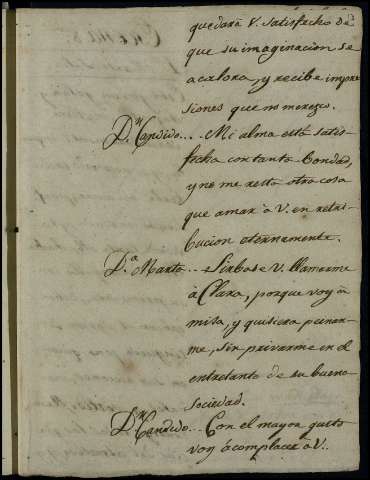 quedará V. satisfecho de
que su imaginacion se
acalora, y recibe impre
siones que no merezco.
D.n Candido... Mi alma está satis-
fecha con tanta bondad,
y no me resta otra cosa
que amar à V. en retri-
bucion eternamente.
D.a Marta... Sirbase V. llamarme
à Clara, porque voy à
misa, y quisiera peinar-
me, sin privarme en el
entretanto de su buena
sociedad.
D.n Candido... Con el mayor gusto
voy à complacer à V.